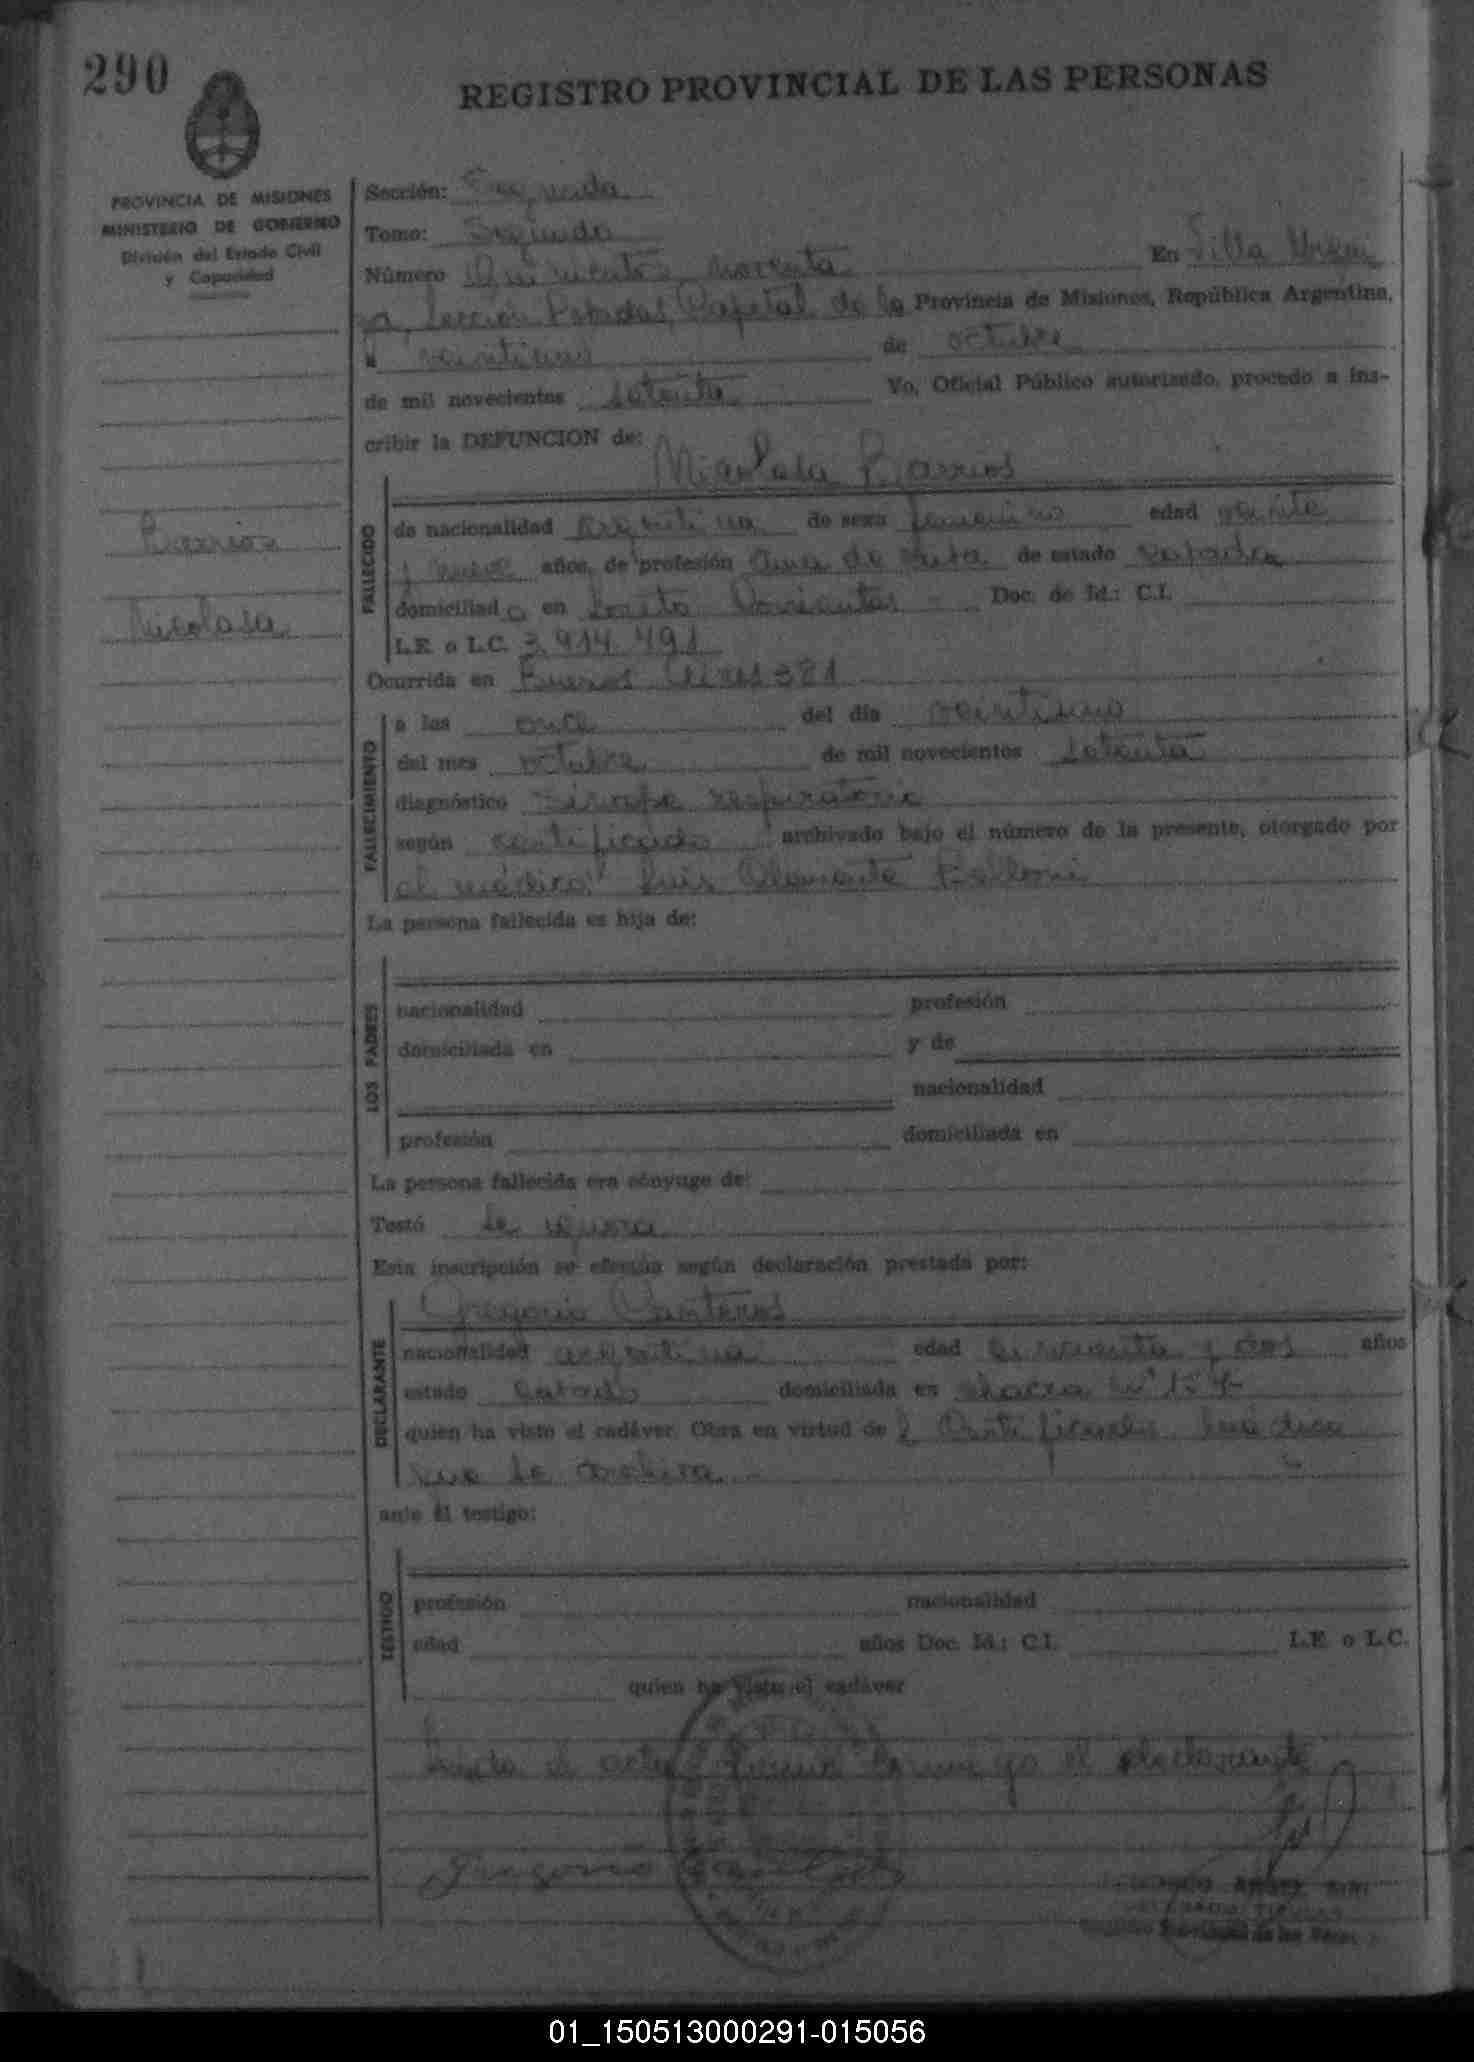 290
REGISTRO PROVINCIAL DE LAS PERSONAS
PROVINCIA DE MISIONES
MINISTERIO DE GOBIERNO
División del Estado Civil
y Capacidad
Sección: Segunda
Tomo: Segundo
Número Quinientos noventa En Villa Urqui
za, Sección Posadas, Capital de la Provincia de Misiones, República Argentina,
a veintiuno de octubre
de mil novecientos setenta Yo, Oficial Público autorizado, procedo a ins-
cribir la DEFUNCION de:
Nicolasa Barrios
Barrios
Nicolasa
FALLECIDO
de nacionalidad argentina de sexo femenino edad veinte
y nueve años, de profesión ama de casa de estado casada
domiciliada en Loreto Corrientes - Doc. de Id.: C.I.
L.E. o L.C. 3.914.491
Ocurrida en Buenos Aires 381
FALLECIMIENTO
a las once del día veintiuno
del mes octubre de mil novecientos setenta
diagnóstico síncope respiratorio
según certificado archivado bajo el número de la presente, otorgado por
el médico Luis Clemente Belloni
La persona fallecida es hija de:
LOS PADRES
nacionalidad profesión
domiciliada en y de
nacionalidad
profesión domiciliada en
La persona fallecida era cónyuge de:
Testó se ignora
Esta inscripción se efectúa según declaración prestada por:
Gregorio Canteros
DECLARANTE
nacionalidad argentina edad cincuenta y dos años
estado casado domiciliada en chacra Nº 154
quien ha visto el cadáver. Obra en virtud de l Certificado médico
que se archiva
ante el testigo:
TESTIGO
profesión nacionalidad
edad años Doc. Id.: C.I. L.E. o L.C.
quien ha visto el cadáver
Leída el acta firma conmigo el declarante
Gregorio
01_150513000291-015056